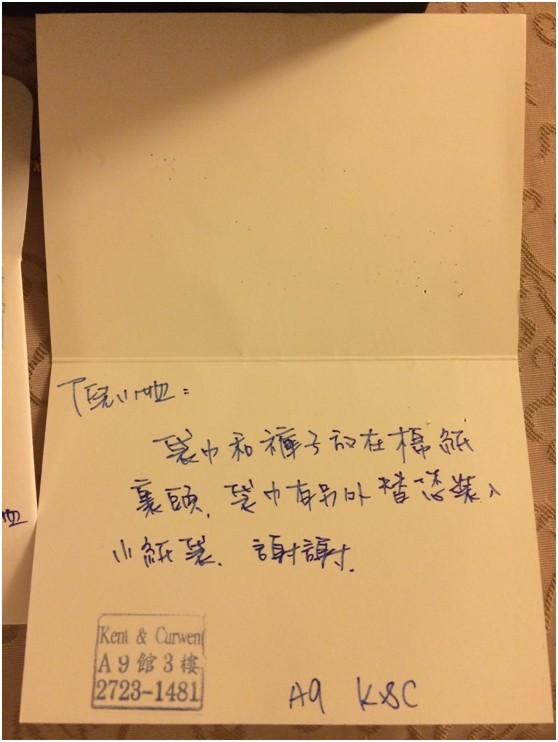 小姐:
袋巾和褲子放在棉紙
裏頭, 袋巾有另外替您裝入
小紙袋. 謝謝.
Kent & Curwen
A9館3樓
2723-1481
A9 K&C